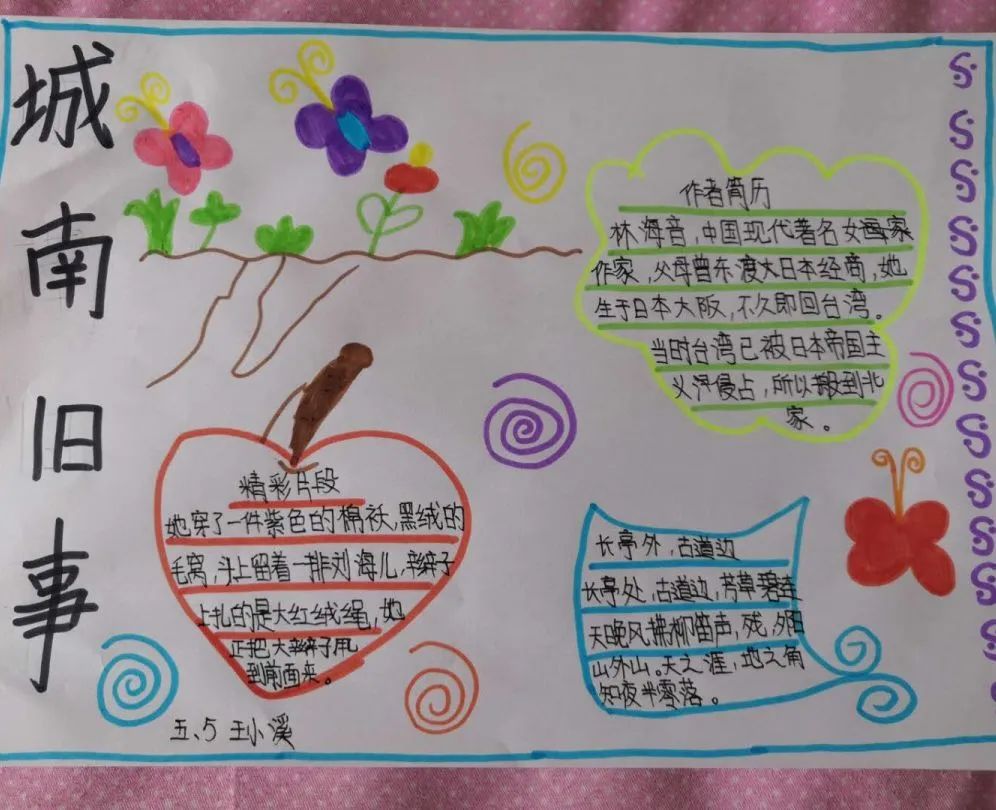 城南旧事
作者简历
林海音,中国现代著名女画家
作家,父母曾东渡大日本经商,她
生于日本大阪,不久即回台湾。
当时台湾已被日本帝国主
义侵占,所以搬到北
家。
精彩片段
她穿了一件紫色的棉袄,黑绒的
毛窝,头上留着一排刘海儿,辫子
上扎的是大红绒绳,她
正把大辫子甩
到前面来。
长亭外,古道边
长亭处,古道边,芳草碧连
天晚风拂柳笛声,残,夕阳
山外山。天之涯,地之角
知夜半零落。
五、5 王小溪